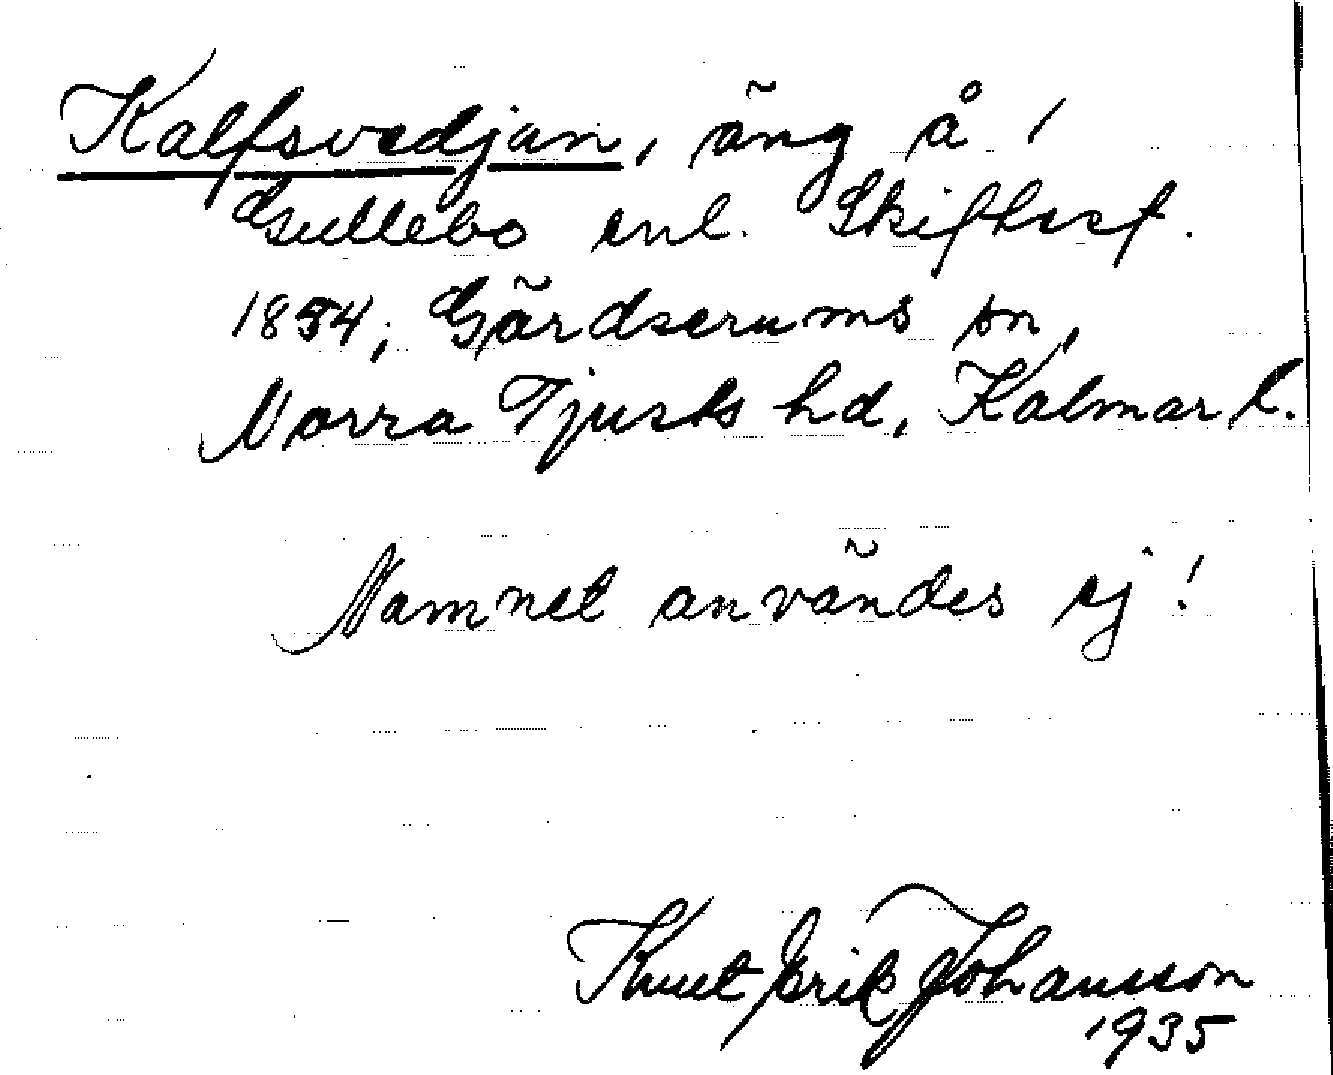 Kalfsvedjan, äng å /
Gullebo enl. Skifteskt.
1834; Gärdserums sn,
Norra Tjusts hd, Kalmar l.
Namnet användes ej!
Knut Erik Johansson
1935